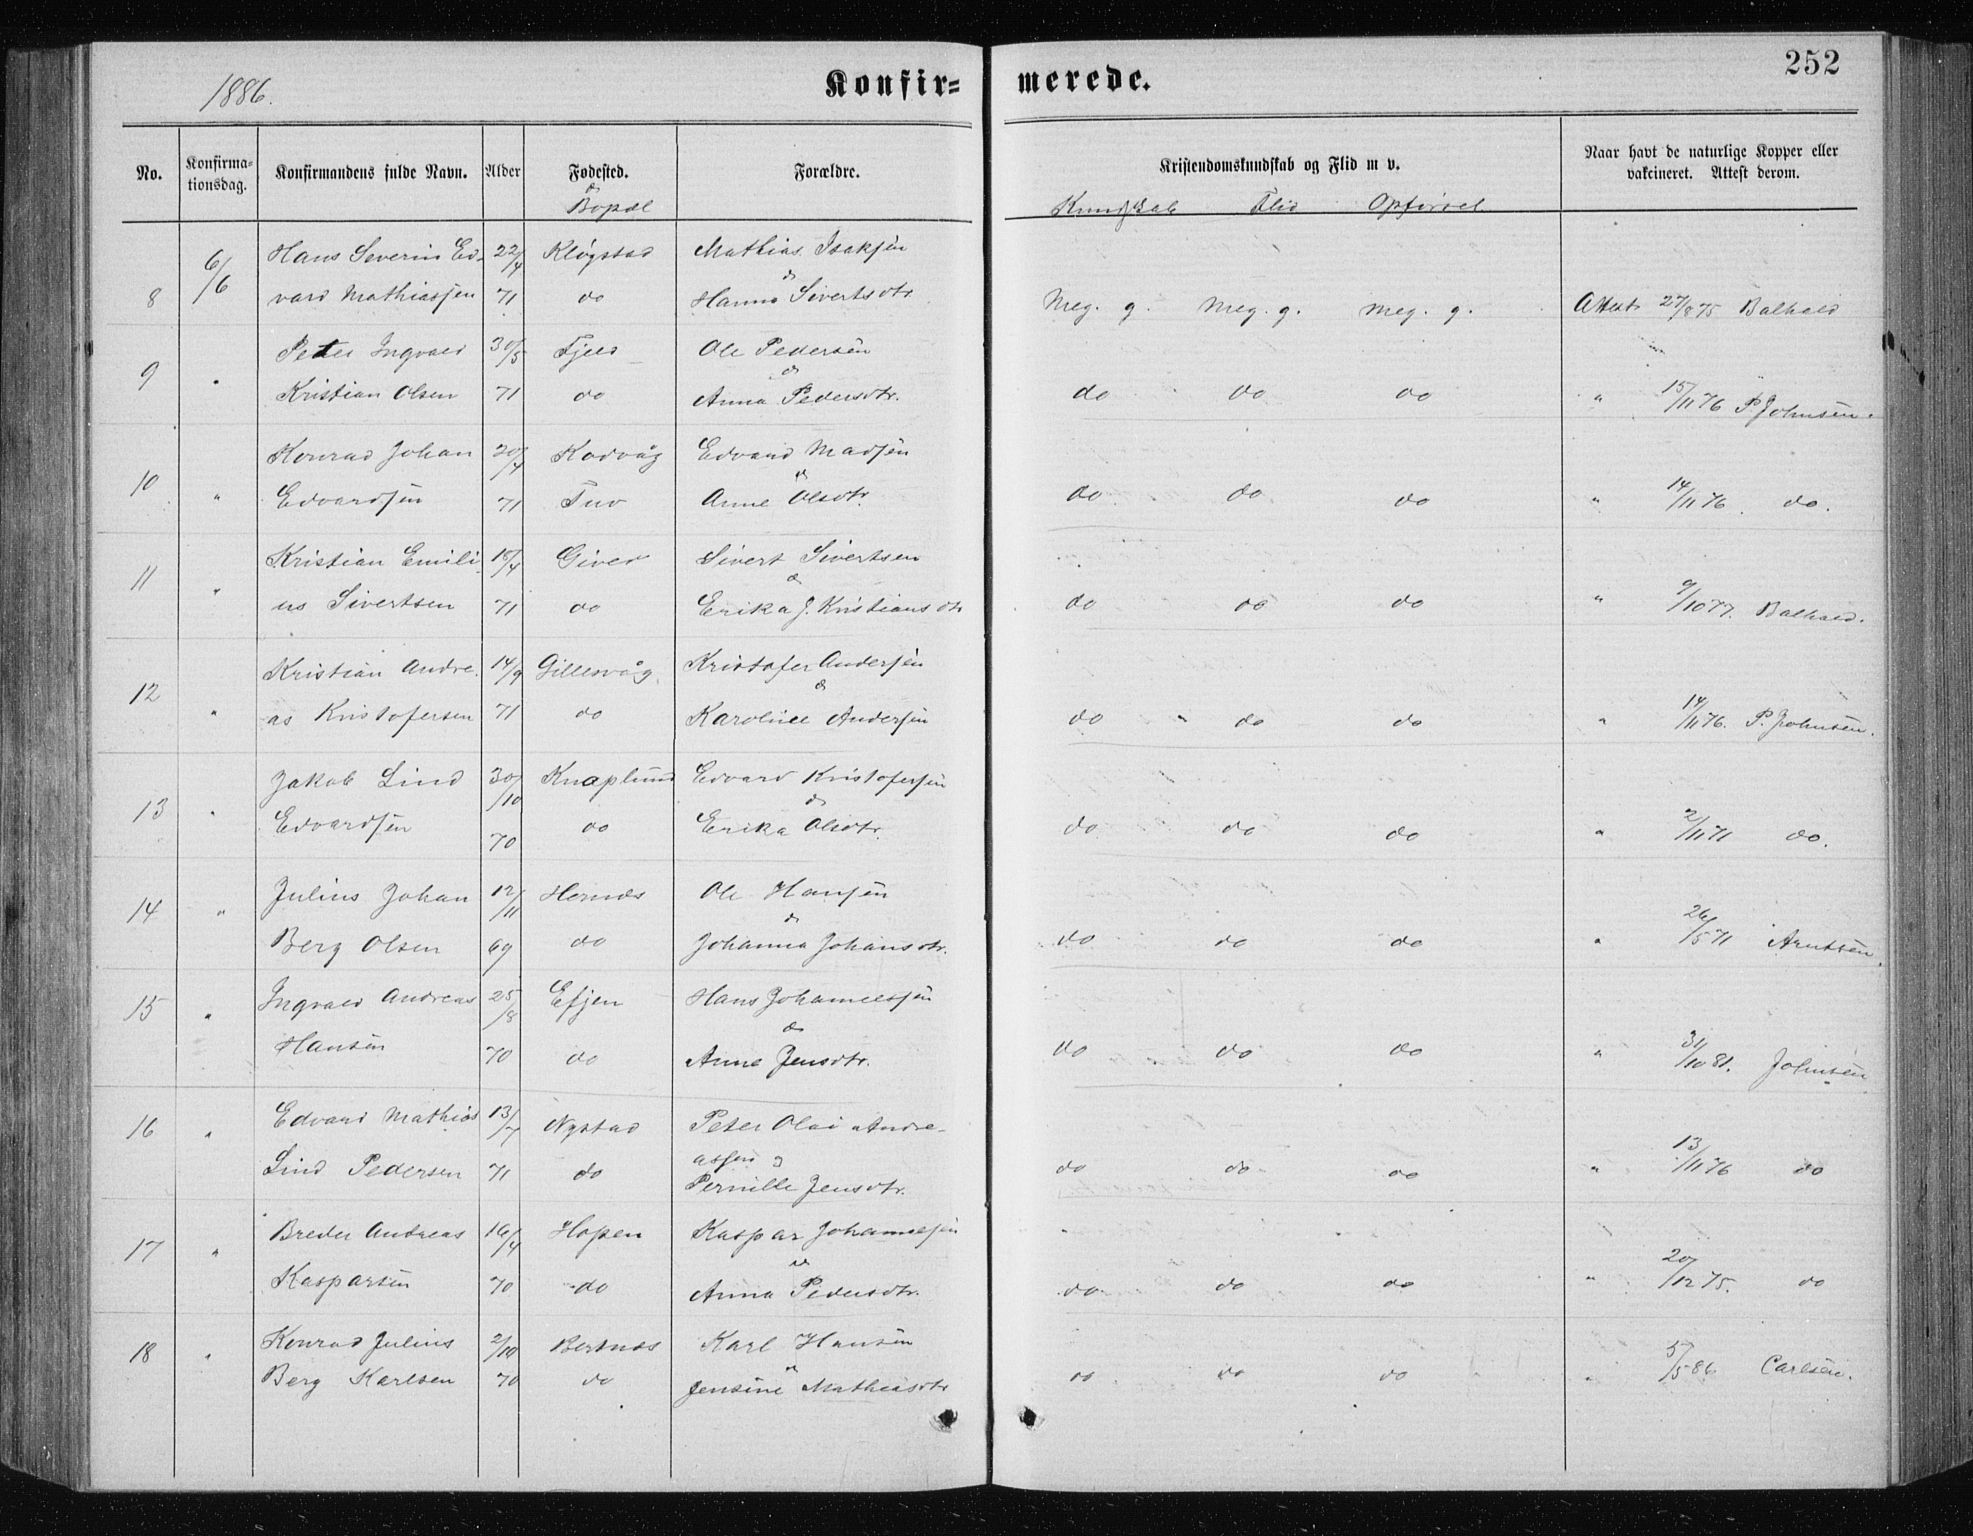 252
1886.
Konfir= merede.
No. Konfirma- tionsdag. Konfirmandens fulde Navn. Alder Fødested. Forældre. Kristendomskundskab og Flid m v. Naar havt de naturlige Kopper eller vakcineret. Attest derom.
& Bopæl Kundskab Flid Opførsel
8 6/6 Hans Severin Ed- 22/4 Kløgstad Mathias Isaksen
&
vard Mathiassen 71 do Hanna Sivertsdtr. Meg. g. Meg. g. Meg. g. Attest 27/8 75 Balhald
9 " Peter Ingvald 30/5 Fjeld Ole Pedersen
&
Kristian Olsen 71 do Anna Pedersdtr. do do do " 15/11 76 P. Johnsen.
10 " Konrad Johan 20/4 Kodvåg Edvard Madsen
&
Edvardsen 71 Tuv Anne Olsdtr. do do do " 14/11 76. do.
11 " Kristian Emili- 18/4 Giver Sivert Sivertsen
&
us Sivertsen 71 do Erika J. Kristiansdtr do do do " 9/10 77. Balhald.
12 " Kristian Andre- 14/9 Gillesvåg Kristofer Andersen
&
as Kristofersen 71 do Karoline Andersen do " do do " 14/11 76. P. Johnsen.
13 " Jakob Lind 30/10 Knaplund Edvard Kristofersen
&
Edvardsen 70 do Erika Olsdtr. do do do " 2/11 71 do.
14 " Julius Johan 12/11 Hernes Ole Hansen
&
Berg Olsen 69 do Johanna Johansdtr. do do do " 26/5 71 Arntsen.
15 " Ingvald Andreas 25/8 Efjen Hans Johannessen
&
Hansen 70 do Anne Jensdtr. do do do " 31/10 81. Johnsen
16 " Edvard Mathias 13/7 Nystad Peter Olai Andre-
assen &
Lind Pedersen 71 do Pernille Jensdtr. do do do " 13/11 76 do
17 " Breder Andreas 16/4 Hopen Kaspar Johannesen
&
Kaspersen 70 do Anna Pedersdtr. do do do " 20/12 75. do
18 " Konrad Julius 2/10 Bertnes Karl Hansen
&
Berg Karlsen 70 do Jensine Mathiasdtr do do do " 5/5 86 Carlsen.